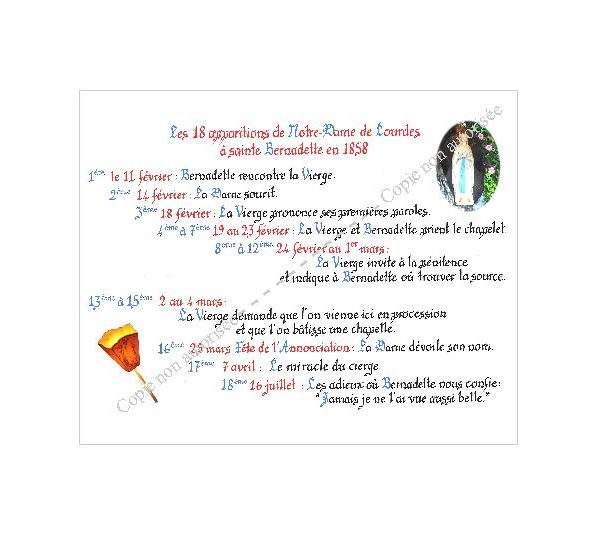 Les 18 apparitions de Notre-Dame de Lourdes
à sainte Bernadette en 1858
1ère le 11 février : Bernadette rencontre la Vierge.
2ème 14 février : La Dame sourit.
3ème 18 février : La Vierge prononce ses premières paroles.
4ème à 7ème 19 au 23 février : La Vierge et Bernadette prient le chapelet.
8ème à 12ème 24 février au 1er mars :
La Vierge invite à la pénitence
et indique à Bernadette où trouver la source.
13ème à 15ème 2 au 4 mars :
La Vierge demande que l'on vienne ici en procession
et que l'on bâtisse une chapelle.
16ème 25 mars Fête de l'Annonciation : La Dame dévoile son nom.
17ème 7 avril : Le miracle du cierge
18ème 16 juillet : Les adieux où Bernadette nous confie:
"Jamais je ne l'ai vue aussi belle."
Copie non autorisée - - - - - - Copie non autorisée